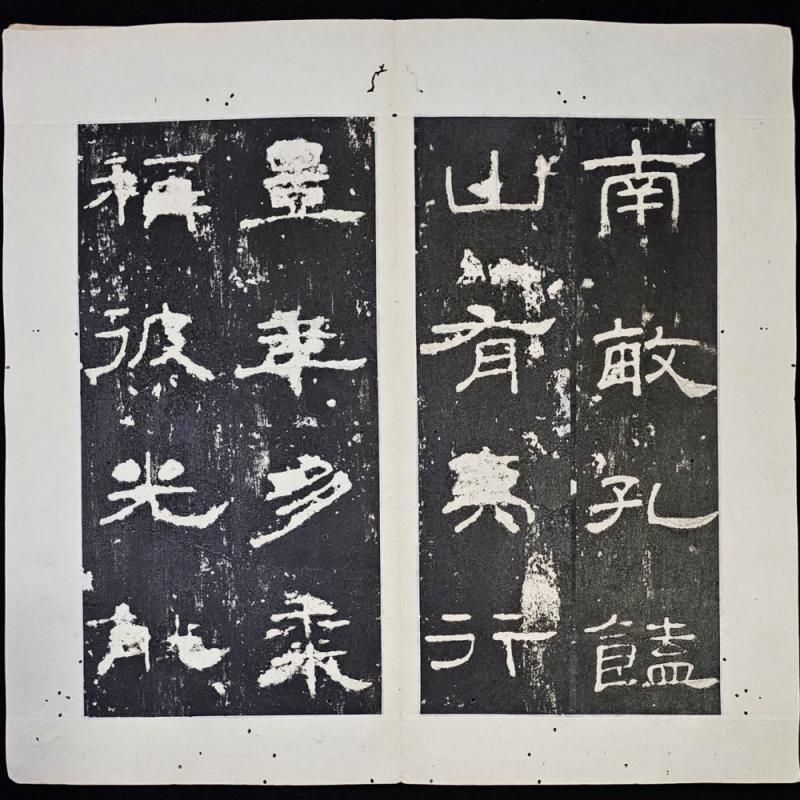 南畝孔饁
山有夷行
豐年多黍
稱彼兕觥